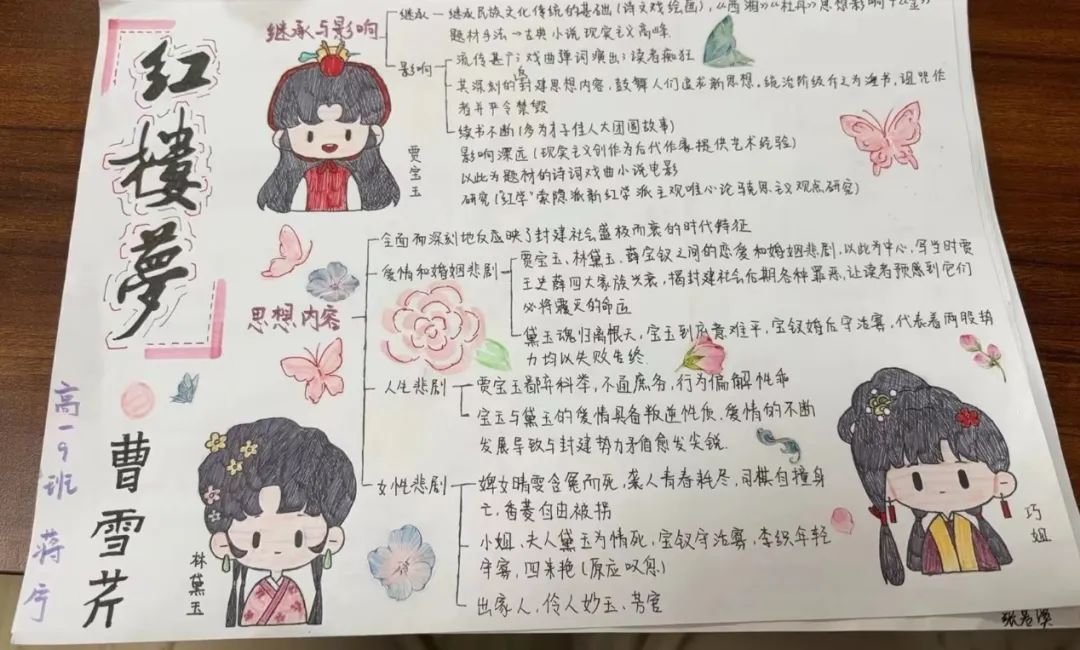 红楼梦
曹雪芹
高一9班 蒋
继承与影响
继承—继承民族文化传统的基础(诗文戏绘画),《西湘》《牡丹》思想影响
题材手法→古典小说现实主义高峰
影响
流传甚广;戏曲弹词演出;读者痴狂
其深刻的反封建思想内容,鼓舞人们追求新思想。统治阶级斥之为淫书,诅咒作
者并严令禁毁
续书不断(多为才子佳人大团圆故事)
影响深远(现实主义创作为后代作家提供艺术经验)
以此为题材的诗词戏曲小说电影
研究("红学"索隐派新红学派主观唯心论马克思主义观点研究)
贾宝玉
思想内容
全面而深刻地反应映了封建社会盛极而衰的时代特征
爱情和婚姻悲剧
贾宝玉、林黛玉、薛宝钗之间的恋爱和婚姻悲剧,以此为中心,写当时贾
王史薛四大家族兴衰,揭封建社会后期各种罪恶,让读者预感到它们
必将覆灭的命运
黛玉魂归离恨天,宝玉到底意难平,宝钗婚后守活寡,代表着两股势
力均以失败告终.
人生悲剧
贾宝玉鄙弃科举,不通庶务,行为偏解性乖
宝玉与黛玉的爱情具备叛逆性质.爱情的不断
发展导致与封建势力矛盾愈发尖锐.
女性悲剧
婢女晴雯含冤而死,袭人青春耗尽,司棋自撞身
亡,香菱自由被拐
小姐、夫人黛玉为情死,宝钗守活寡,李纨年轻
守寡,四春艳(原应叹息)
出家人,伶人妙玉、芳官
林黛玉
巧姐